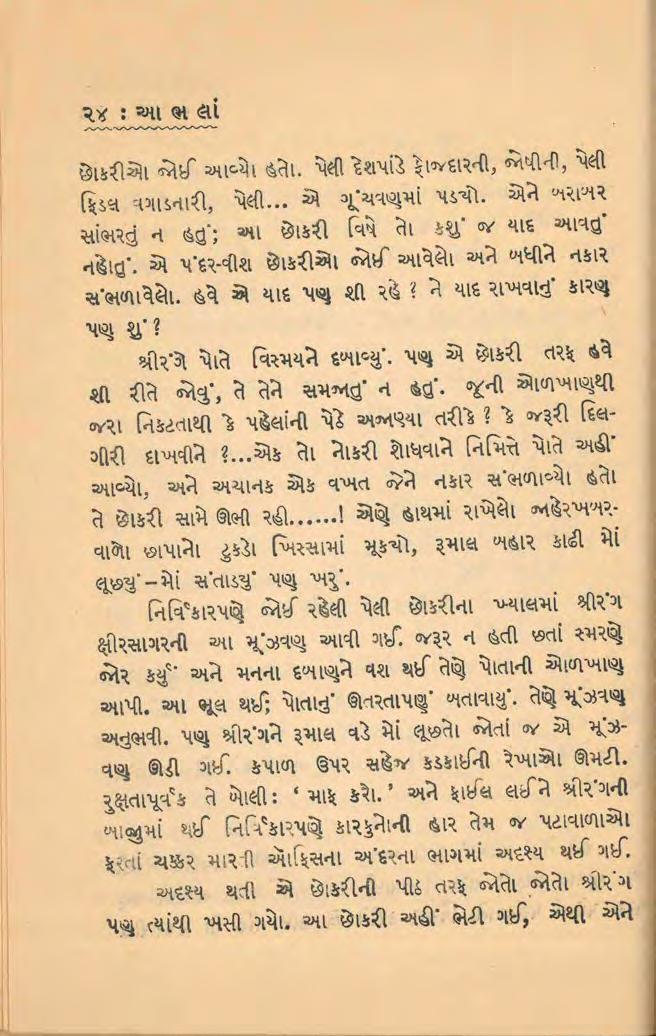 ૨૪ : આ ભ લાં
છોકરીઓ જોઈ આવ્યો હતો. પેલી દેશપાંડે ફોજદારની, જોષીની, પેલી
ફિડલ વગાડનારી, પેલી... એ ગૂંચવણમાં પડ્યો. એને બરાબર
સાંભરતું ન હતું; આ છોકરી વિષે તો કશું જ યાદ આવતું
નહોતું. એ પંદર-વીશ છોકરીઓ જોઈ આવેલો અને બધીને નકાર
સંભળાવેલો. હવે એ યાદ પણ શી રહે ? ને યાદ રાખવાનું કારણ
પણ શું ?
શ્રીરંગે પોતે વિસ્મયને દબાવ્યું. પણ એ છોકરી તરફ હવે
શી રીતે જોવું, તે તેને સમજાતું ન હતું. જૂની ઓળખાણથી
જરા નિકટતાથી કે પહેલાંની પેઠે અજાણ્યા તરીકે ? કે જરૂરી દિલ-
ગીરી દાખવીને ?...એક તો નોકરી શોધવાને નિમિત્તે પોતે અહીં
આવ્યો, અને અચાનક એક વખત જેને નકાર સંભળાવ્યો હતો
તે છોકરી સામે ઊભી રહી......! એણે હાથમાં રાખેલો જાહેરખબર-
વાળો છાપાનો ટુકડો ખિસ્સામાં મૂક્યો, રૂમાલ બહાર કાઢી મોં
લૂછ્યું – મોં સંતાડ્યું પણ ખરું.
નિર્વિકારપણે જોઈ રહેલી પેલી છોકરીના ખ્યાલમાં શ્રીરંગ
ક્ષીરસાગરની આ મૂંઝવણ આવી ગઈ. જરૂર ન હતી છતાં સ્મરણે
જોર કર્યું અને મનના દબાણને વશ થઈ તેણે પોતાની ઓળખાણ
આપી. આ ભૂલ થઈ; પોતાનું ઊતરતાપણું બતાવાયું. તેણે મૂંઝવણ
અનુભવી. પણ શ્રીરંગને રૂમાલ વડે મોં લૂછતો જોતાં જ એ મૂંઝ-
વણ ઊડી ગઈ. કપાળ ઉપર સહેજ કડકાઈની રેખાઓ ઊમટી.
રુક્ષતાપૂર્વક તે બોલી: ‘ માફ કરો. ’ અને ફાઈલ લઈને શ્રીરંગની
બાજુમાં થઈ નિર્વિકારપણે કારકુનોની હાર તેમ જ પટાવાળાઓ
ફરતાં ચક્કર મારતી ઑફિસના અંદરના ભાગમાં અદૃશ્ય થઈ ગઈ.
અદૃશ્ય થતી એ છોકરીની પીઠ તરફ જોતો જોતો શ્રીરંગ
પણ ત્યાંથી ખસી ગયો. આ છોકરી અહીં ભેટી ગઈ, એથી એને